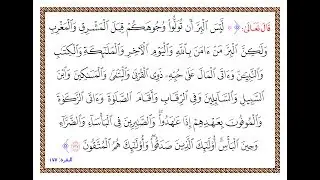 قَالَ تَعَالَىٰ: ﴿ لَّيْسَ ٱلْبِرَّ أَن تُوَلُّوا۟ وُجُوهَكُمْ قِبَلَ ٱلْمَشْرِقِ وَٱلْمَغْرِبِ
وَلَٰكِنَّ ٱلْبِرَّ مَنْ ءَامَنَ بِٱللَّهِ وَٱلْيَوْمِ ٱلْءَاخِرِ وَٱلْمَلَٰٓئِكَةِ وَٱلْكِتَٰبِ
وَٱلنَّبِيِّۦنَ وَءَاتَى ٱلْمَالَ عَلَىٰ حُبِّهِۦ ذَوِى ٱلْقُرْبَىٰ وَٱلْيَتَٰمَىٰ وَٱلْمَسَٰكِينَ وَٱبْنَ
ٱلسَّبِيلِ وَٱلسَّآئِلِينَ وَفِى ٱلرِّقَابِ وَأَقَامَ ٱلصَّلَوٰةَ وَءَاتَى ٱلزَّكَوٰةَ
وَٱلْمُوفُونَ بِعَهْدِهِمْ إِذَا عَٰهَدُوا۟ وَٱلصَّٰبِرِينَ فِى ٱلْبَأْسَآءِ وَٱلضَّرَّآءِ
وَحِينَ ٱلْبَأْسِ أُو۟لَٰٓئِكَ ٱلَّذِينَ صَدَقُوا۟ وَأُو۟لَٰٓئِكَ هُمُ ٱلْمُتَّقُونَ ﴾
البقرة: ١٧٧